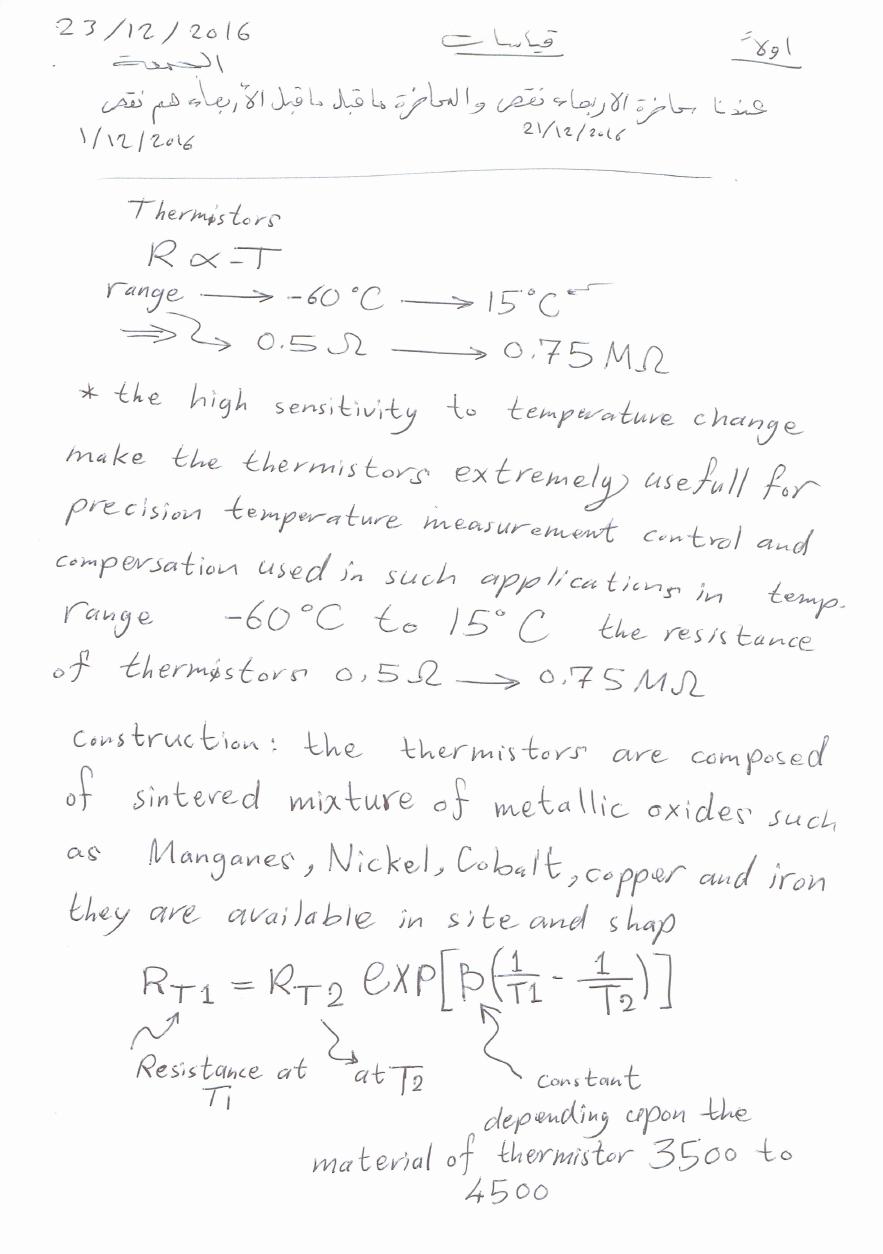 23/12/2016 قياسات اولاً
الجمعة
عندنا محاضرة الاربعاء نقص والمحاضرة ماقبل ماقبل الأربعاء هم نقص
1/12/2016 21/12/2016
Thermistors
R ∝ -T
range → -60°C → 15°C
⇒ 0.5 Ω → 0.75 MΩ
* the high sensitivity to temperature change
make the thermistors extremely usefull for
precision temperature measurement control and
compersation used in such applications in temp.
range -60°C to 15°C the resistance
of thermistors 0,5Ω → 0.75 MΩ
Construction: the thermistors are composed
of sintered mixture of metallic oxides such
as Manganes, Nickel, Cobalt, copper and iron
they are available in site and shap
R_T1 = R_T2 exp[β(1/T1 - 1/T2)]
Resistance at T1
at T2
constant
depending upon the
material of thermistor 3500 to
4500